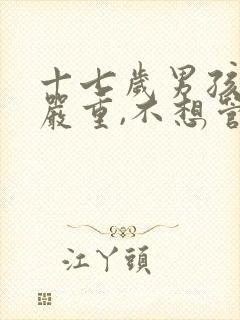 十七歲男孩
嚴重,不想管
江丫頭